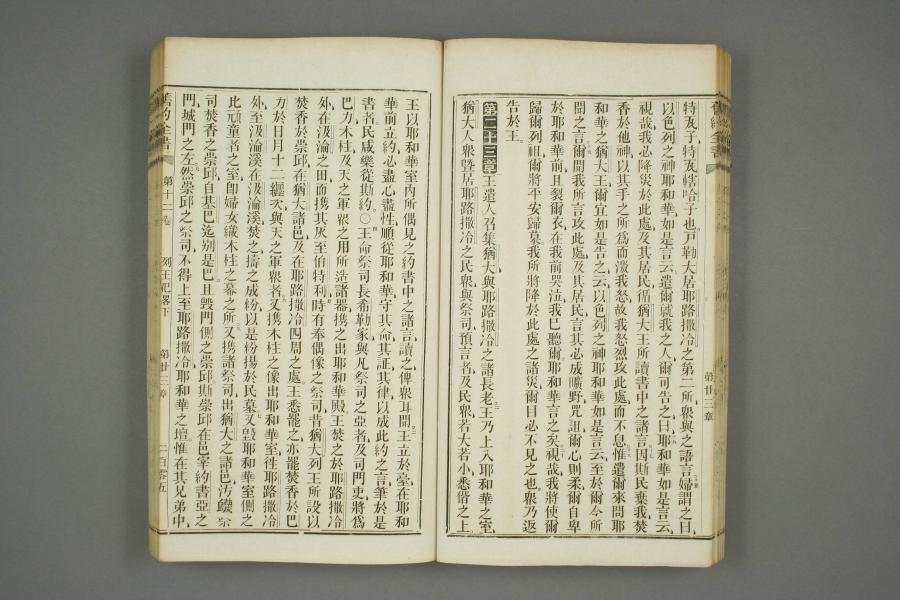 舊約全書 第廿三章
特瓦子特瓦轄哈子也戶勒大居耶路撒冷之第二所衆與之語言婦謂之曰
以色列之神耶和華如是言云遣爾就我之人爾可告之曰耶和華如是言云
視哉我必降災於此處及其居民循猶大王所讀書中之諸言因斯民棄我焚
香於他神以其手之所爲而激我怒故我怒烈攻此處而不息惟遣爾來問耶
和華之猶大王爾宜如是告之云以色列之神耶和華如是言云至於爾今所
聞之言爾聞我所言攻此處及其居民言其必成曠野咒詛爾心則柔爾自卑
於耶和華前且裂爾衣在我前哭泣我已聽爾耶和華言之矣視哉我將使爾
歸爾列祖爾將平安歸墓我所將降於此處之諸災爾目必不見之也衆乃返
告於王
第二十三章王遣人召集猶大與耶路撒冷之諸長老王乃上入耶和華之室
猶大人衆暨居耶路撒冷之民衆與祭司預言者及民衆若大若小悉偕之上
王以耶和華室內所偶見之約書中之諸言讀之俾衆耳聞王立於臺在耶和
華前立約必盡心盡性順從耶和華守其命其証其律以成此約之言筆於是
書者民咸樂從斯約〇王命祭司長希勒家與凡祭司之亞者及司門吏將爲
巴力木柱及天之軍衆之用所造諸器携之出耶和華殿王焚之於耶路撒冷
外在汲淪之田而携其灰至伯特利時有奉偶像之祭司昔猶大列王所設以
焚香於崇邱在猶大諸邑及在耶路撒冷四周之處王悉罷之亦罷焚香於巴
力於日月十二纏次與天之軍衆者又携木柱之像出耶和華室徃耶路撒冷
外至汲淪溪在汲淪溪焚之擣之成粉以是粉揚於民墓又毀耶和華室側之
比頑童者之室卽婦女織木柱之幕之所又携諸祭司出猶大之諸邑汚衊祭
司焚香之崇邱自基巴迄别是巴且毀門側之崇邱斯崇邱在邑宰約書亞之
門城門之左然崇邱之祭司不得上至耶路撒冷耶和華之壇惟在其兄弟中
舊約全書 第十二卷 列王紀畧下 第廿三章 二百零五